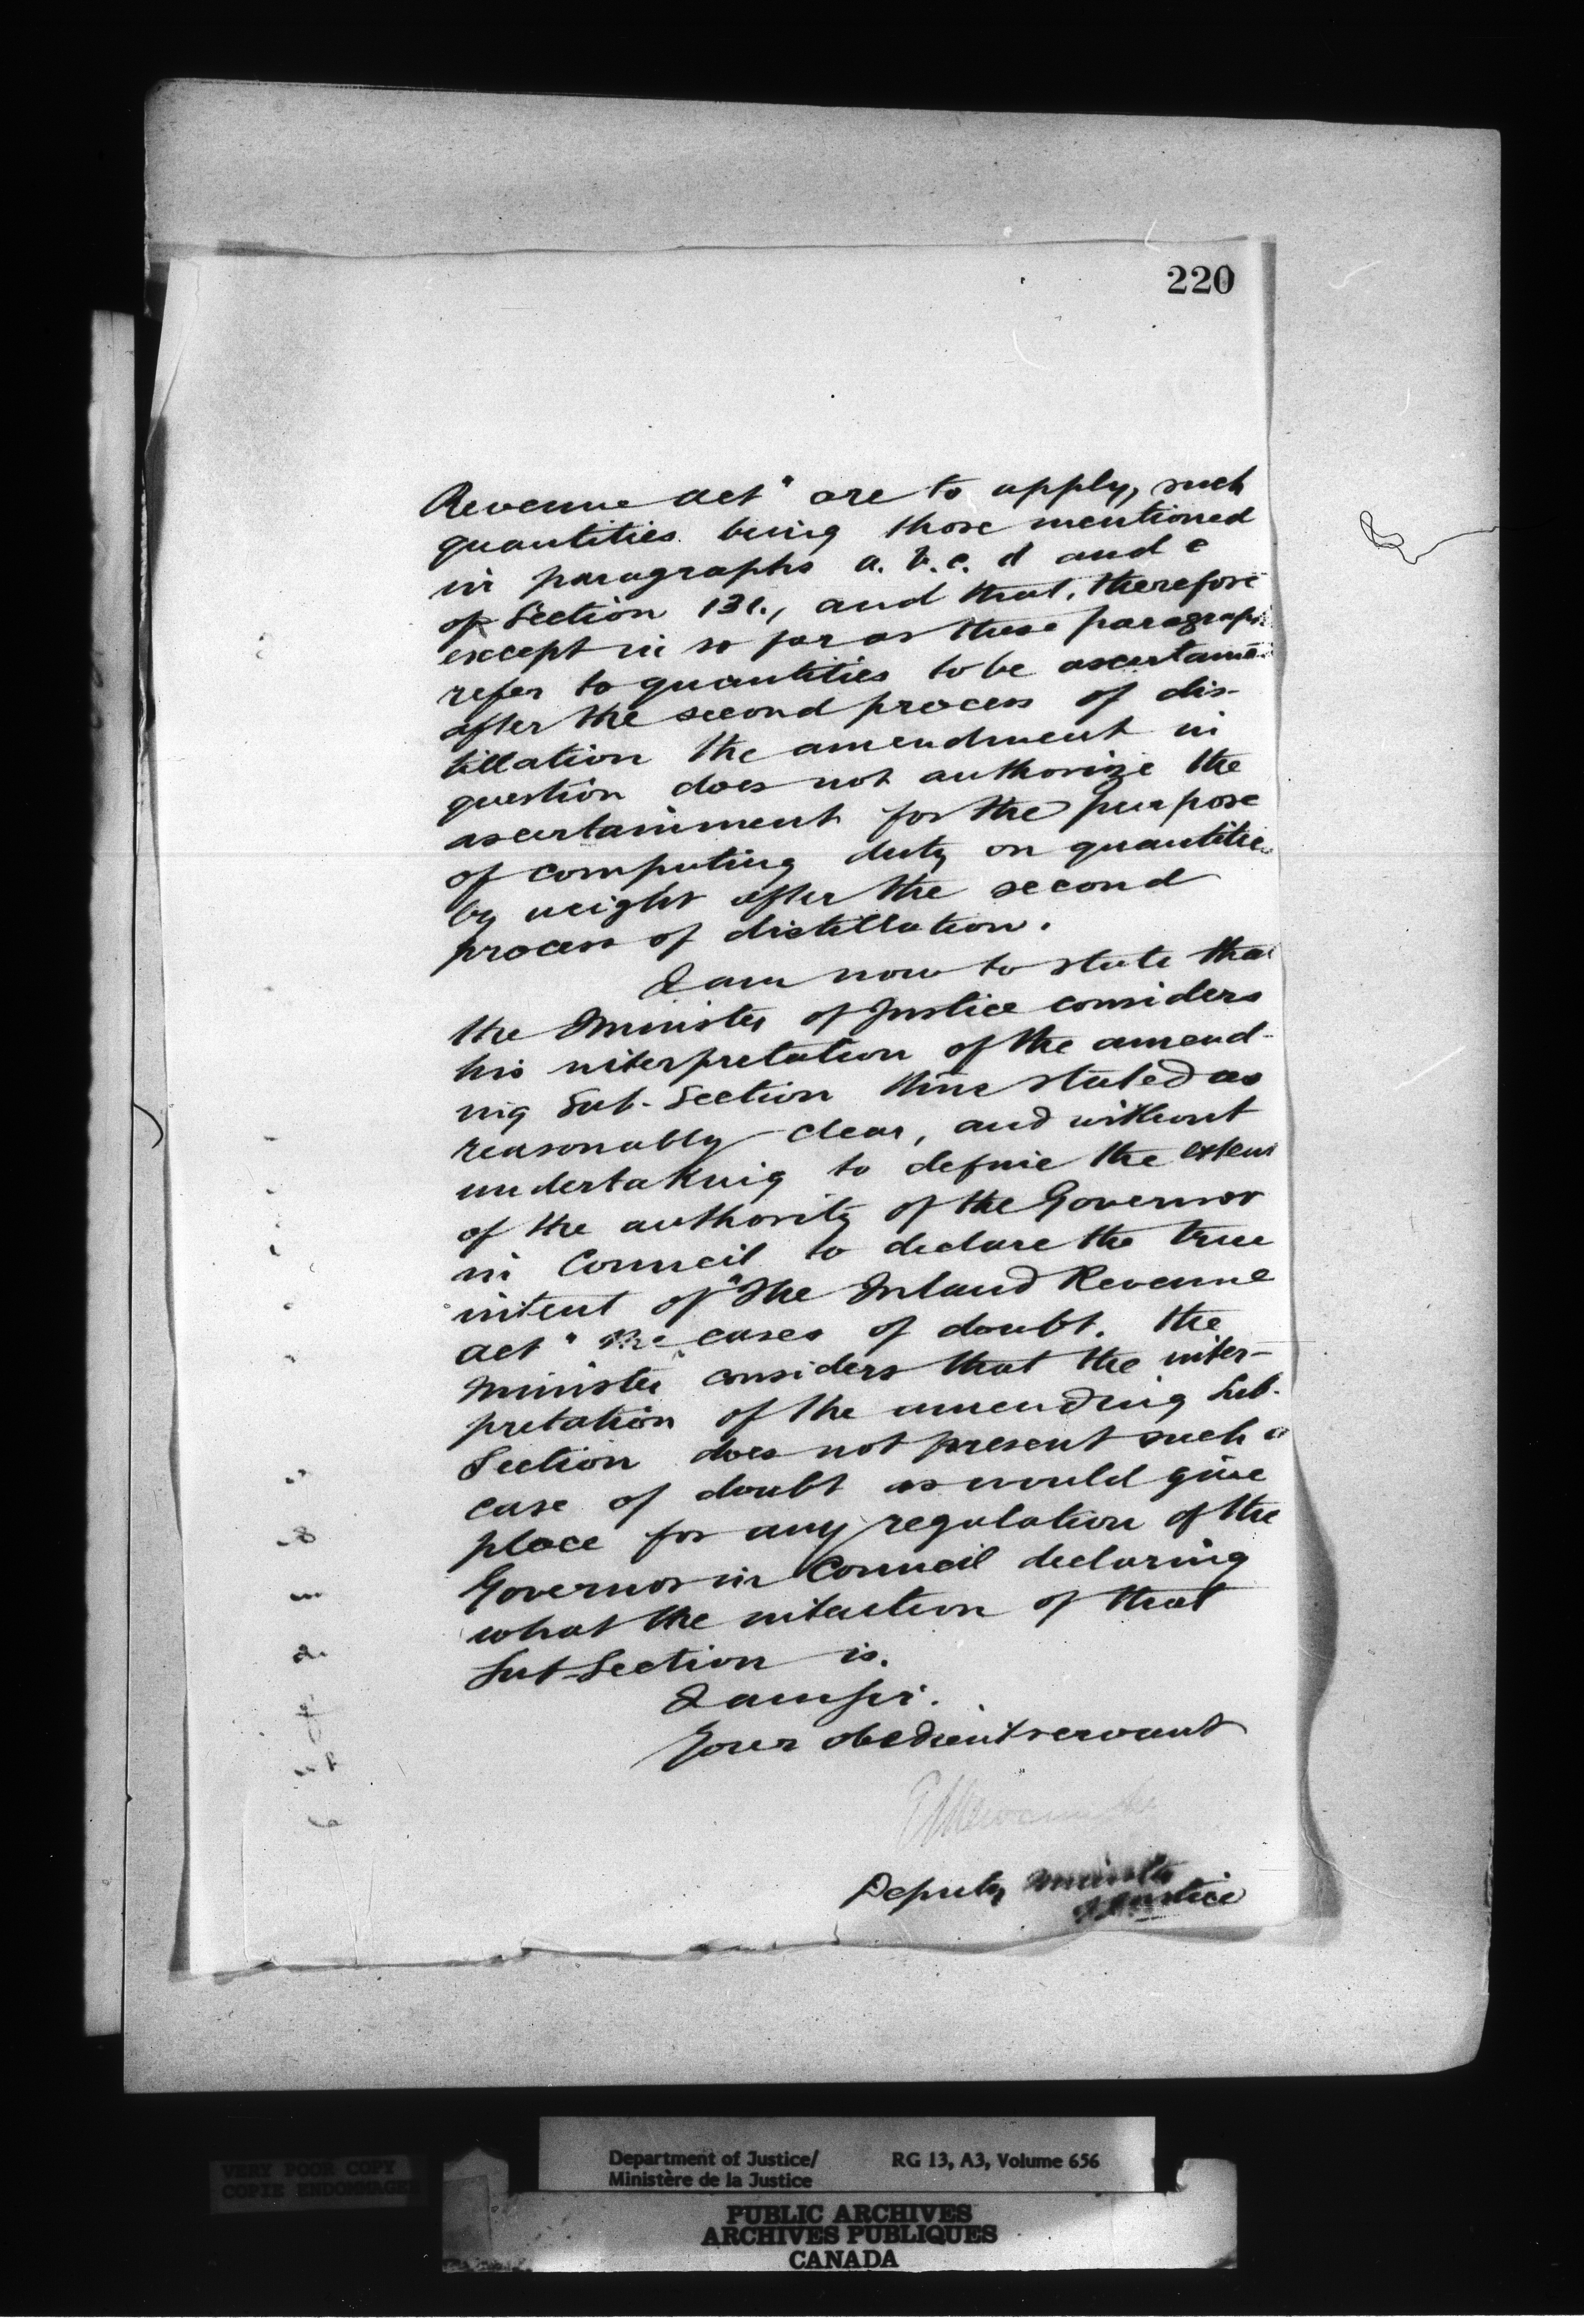 220
Revenue Act" are to apply, such
quantities being those mentioned
in paragraphs a. b. c. d and e
of Section 131., and that, therefore
except in so far as these paragraphs
refer to quantities to be ascertained
after the second process of dis-
tillation the amendment in
question does not authorize the
ascertainment for the purpose
of computing duty on quantities
by weight after the second
process of distillation.
I am now to state that
the Minister of Justice considers
his interpretation of the amend-
ing Sub-Section thus stated as
reasonably clear, and without
undertaking to define the extent
of the authority of the Governor
in Council to declare the true
intent of "The Inland Revenue
Act" cases of doubt. the
Minister considers that the inter-
pretation of the amending Sub-
Section does not present such a
case of doubt as would give
place for any regulation of the
Governor in Council declaring
what the intention of that
Sub-Section is.
I am Sir.
Your obedient servant
Deputy Minister
of Justice
Department of Justice/ RG 13, A3, Volume 656
Ministère de la Justice
VERY POOR COPY
COPIE ENDOMMAGEE
PUBLIC ARCHIVES
ARCHIVES PUBLIQUES
CANADA